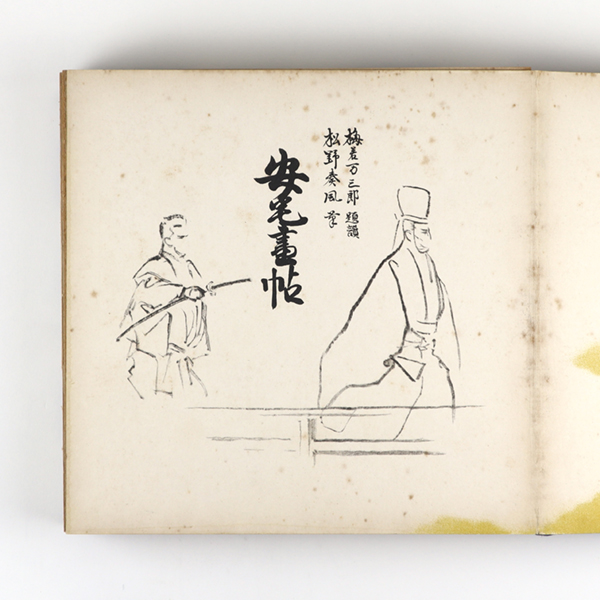 梅若万三郎 題
松野奏風 筆
安宅畫帖